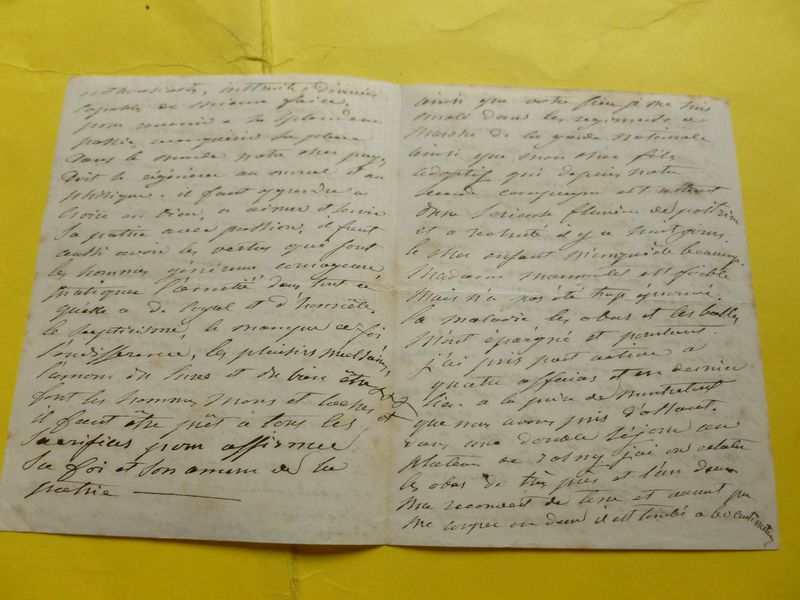 enthousiaste, instruite, dévouée
capable de mieux faire.
pour revenir à sa splendeur
passée, reconquérir sa place
dans le monde notre cher pays
doit se régénérer au moral et au
physique. il faut apprendre à
croire en Dieu, à aimer et servir
sa patrie avec passion, il faut
aussi avoir les vertus qui font
les hommes généreux courageux,
pratiquer l'amitié dans tout ce
qu'elle a de loyal et d'honnête.
le scepticisme, le manque de foi
l'indifférence, les plaisirs malsains,
l'amour du luxe et du bien être
font les hommes mous et lâches, et
il faut être prêt à tous les
sacrifices pour affirmer
sa foi et son amour de la
patrie
ainsi que votre frère je me suis
enrolé dans les régiments de
marche de la garde nationale
ainsi que mon cher fils
adoptif qui depuis notre
seconde campagne est atteint
d'une sérieuse fluxion de poitrine
et a rechuté il y a huit jours.
le cher enfant m'inquiète beaucoup.
Madame est faible
mais n'a pas été trop éprouvée.
la maladie les obus et les balles
m'ont épargné et pourtant
j'ai pris part active à
quatre affaires et en dernier
lieu à la prise de montretout
que nous avons pris d'assaut.
dans une double séjour au
plateau de rosny j'ai vu éclater
les obus de très près et l'un d'eux
me recouvrit de terre et avant
me couper en deux il est tombé à centimètres